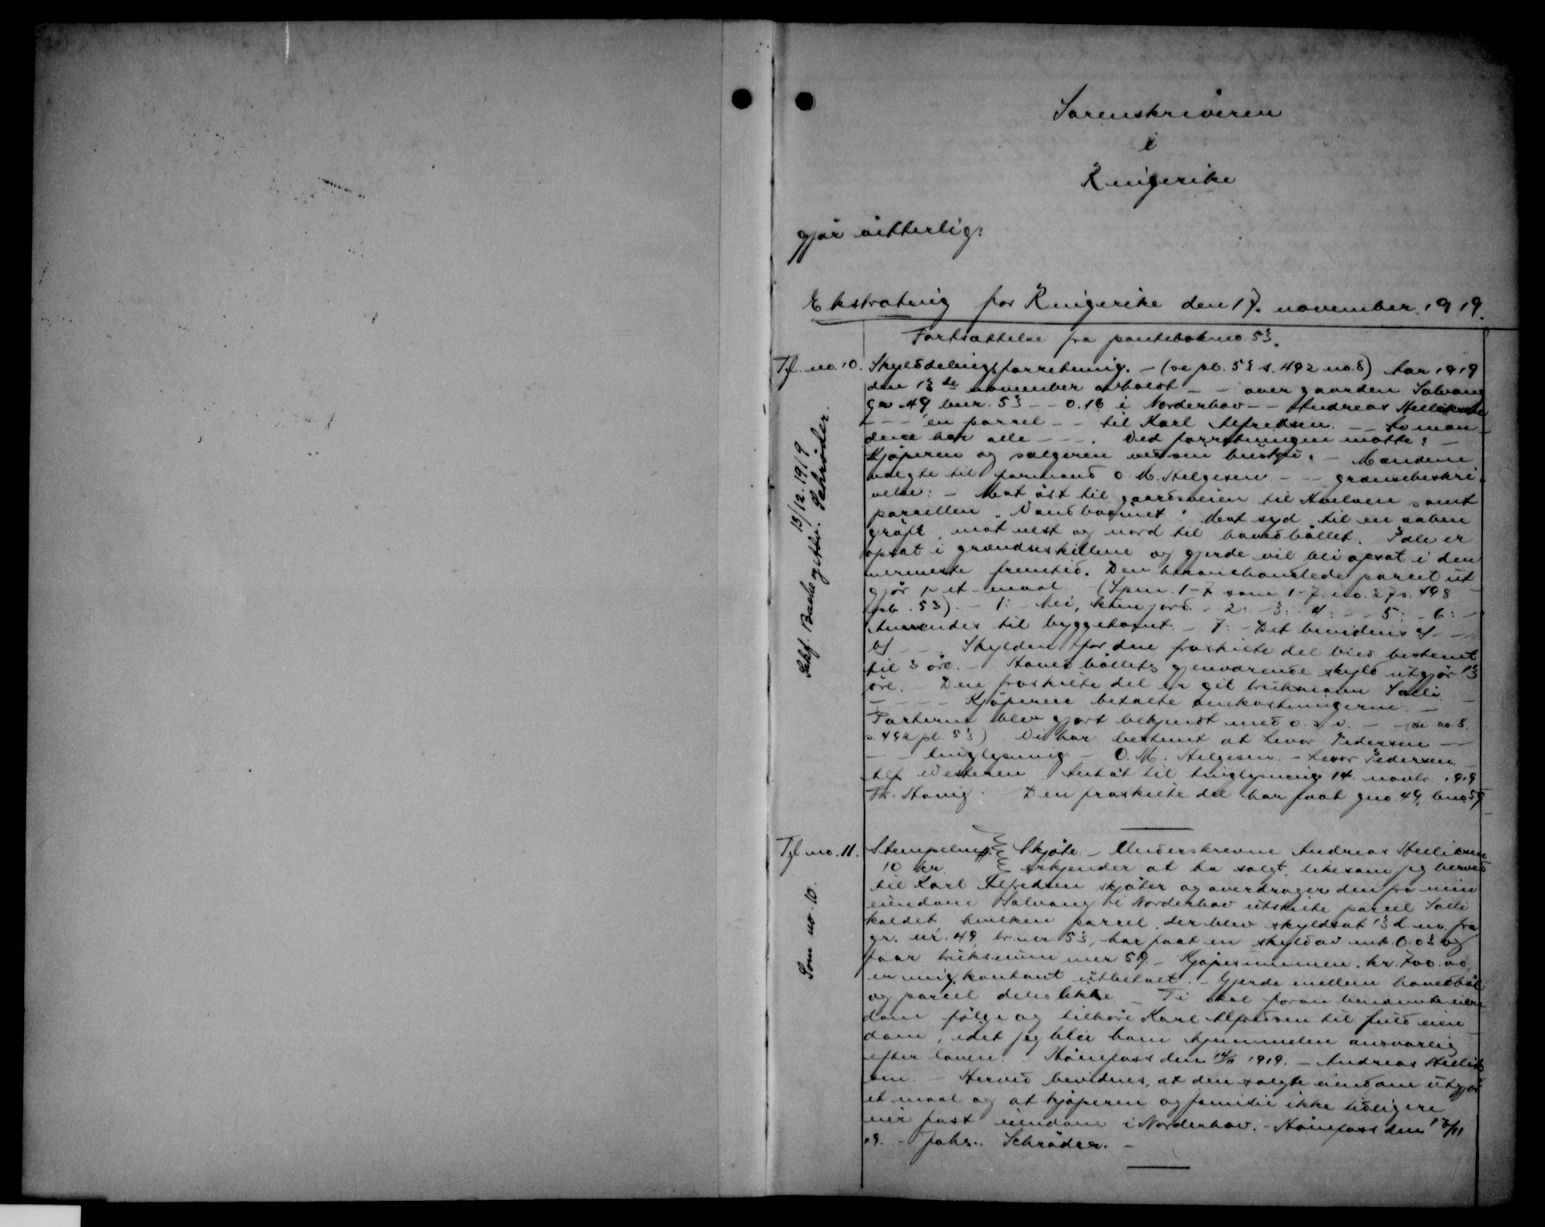 Sorenskriveren
i
Ringerike
gjør vitterlig:
Ekstrating for Ringerike den 17. november 1919.
Fortsættelse fra pantebok no. 53.
Tgl. no. 10. Skylddelingsforretning. – (se pb. 53 s. 492 no. 8) Aar 1919
den 13de november avholdt – – over gaarden Solvang
gnr. 49 bnr. 53 – – 0.16 i Norderhov – – Andreas Helliksen
– – – en parcel – – til Karl Alfredsen. – – Lo man
dene har alle – – –. Ved forretningen møtte: –
Kjøperen og sælgeren
Mændene
valgte til formand O. M. Helgesen – – grænsebeskri
velse: – Mot øst til gaardsveien til Hvelven samt
parcellen "Vandbasinet". Mot syd til en aaben
grøft, mot vest og nord til hovedbøllet. Pæle er
opsat i grændseskillene og gjerde vil bli opsat i den
nærmeste fremtid. Den herav handlede parcel ut
gjør 1, et maal (Spm. 1–7 som 1–7 i no. 27 s. 498
pb. 53). – 1: Nei, kun jord – 2: – 3: – 4: – – 5: – 6: –
Anvendes til byggetomt. – 7: – Det bevidnes
Skylden for den fraskilte del blev bestemt
til 3 øre. – Hovedbøllets gjenværende skyld utgjør 13
øre. – Den fraskilte del er git bruksnavn Solli
– – – – Kjøperen betalte omkostningerne. –
Parterne blev gjort bekjendt med o. s. v. – – (se no. 8
s. 492 pb. 53) Vi har bestemt at Levor Pedersen – –
– – tinglysning – O. M. Helgesen. – Levor Pedersen
Alf Westeren Antat til tinglysning 14. novbr. 1919
Th. Hovig. Den fraskilte del har faat gno. 49, bno 59
13/12. 1919
Schrøder.
Tgl. no. 11. Stempelmrk. Skjøte. – Underskrevne Andreas Helliksen
10 kr. erkjender at ha solgt, likesom jeg herved
til Karl Alfredsen skjøter og overdrager den fra min
eiendom Solvang i Norderhov utskilte parcel Solli
kaldet hvilken parcel, der blev skyldsat 13 d. m. fra
gr. nr. 49 br. nr. 53, har faat en skyld av mk 0.03 og
faar bruksnum mer 59. – Kjøpesummen kr. 700.00
er mig kontant utbetalt. – Gjerde mellem hovedbøl
og parcel deles likt – Ti skal foran benævnte eien
dom følge og tilhøre Karl Alfredsen til fuld eien
dom, idet jeg blir ham hjemmelen ansvarlig
efter loven. – Hønefoss den 14/11 1919. – Andreas Hellik
sen. – Herved bevidnes, at den solgte eiendom utgjør
et maal og at kjøperen og familie ikke tidligere
eier fast eiendom i Norderhov. – Hønefoss den 17/11
19. – Johs. Schrøder. –
Som no. 10.